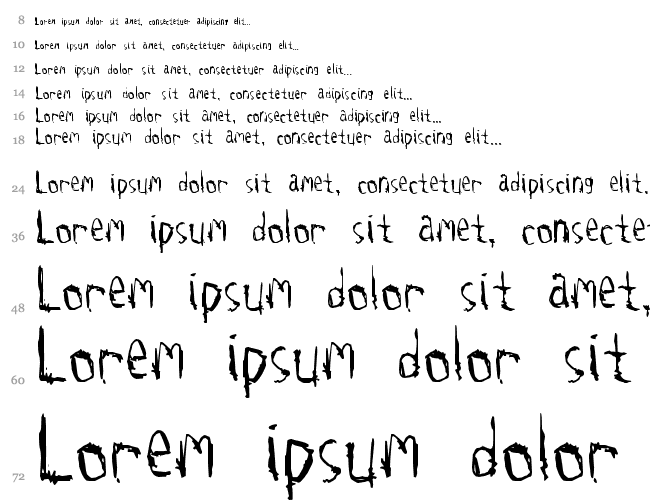 8 Lorem ipsum dolor sit amet, consectetuer adipiscing elit...
10 Lorem ipsum dolor sit amet, consectetuer adipiscing elit...
12 Lorem ipsum dolor sit amet, consectetuer adipiscing elit...
14 Lorem ipsum dolor sit amet, consectetuer adipiscing elit...
16 Lorem ipsum dolor sit amet, consectetuer adipiscing elit...
18 Lorem ipsum dolor sit amet, consectetuer adipiscing elit...
24 Lorem ipsum dolor sit amet, consectetuer adipiscing elit.
36 Lorem ipsum dolor sit amet, consecte
48 Lorem ipsum dolor sit amet,
60 Lorem ipsum dolor sit
72 Lorem ipsum dolor